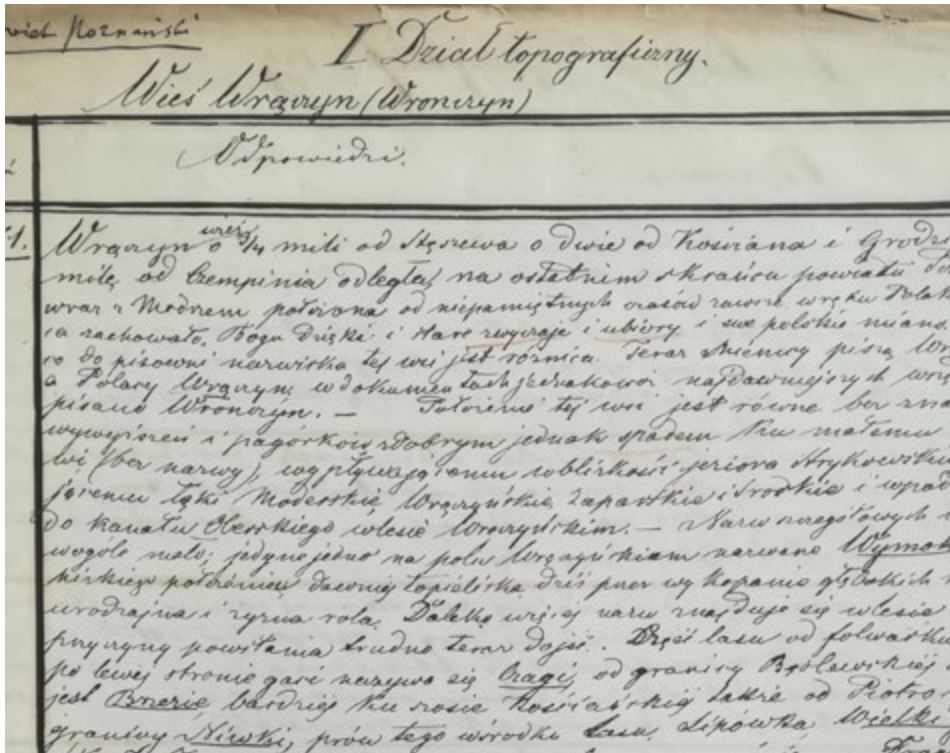 wiat Poznański
I Dział topograficzny.
Wieś Wrączyn (Wronczyn)
Odpowiedzi.
1.
wieś
Wrączyn o 3/4 mili od Stęszewa o dwie od Kościana i Grodz
milę od Czempinia odległa, na ostatnim skrańcu powiatu
wraz z Modrzem położona od niepamiętnych czasów zawsze w ręku Polak
ca zachowało, Bogu Dzięki i stare zwyczaje i ubiory i swe polskie miano
co do pisowni nazwiska tej wsi jest różnica. Teraz Niemcy piszą Wr
a Polacy Wrączyn, w dokumentach jednakowoż najdawniejszych wsi
pisano Wronczyn. — Położenie tej wsi jest równe bez zna
wywyższeń i pagórków z dobrym jednak spadem ku małemu
wi (bez nazwy), wypływającemu w bliskości jeziora Strykowski
jącemu łąki Moderskie, Wrączyńskie, Zaparskie i Srockie i wpad
do kanału Oberskiego w lesie Wrączyńskim. — Nazw szczegółowych
wogóle mało; jedyne jedno na polu Wrączyńskiem nazwane Wymok
nizkiego położenia dawniej topieliska dziś przez wykopanie głębokich
urodzajna i żyzna rola. Daleko więcej nazw znajduje się w lesie
przyczyny powstania trudno teraz dojść. Część lasu od folwarku
po lewej stronie gaci nazywa się Czagi, od granicy Będlewskiej
jest Brzezie, bardziej ku szosie Kościańskiej także od Piotro
granicy Niwki, prócz tego w środku lasu, Lipówka, Wielki